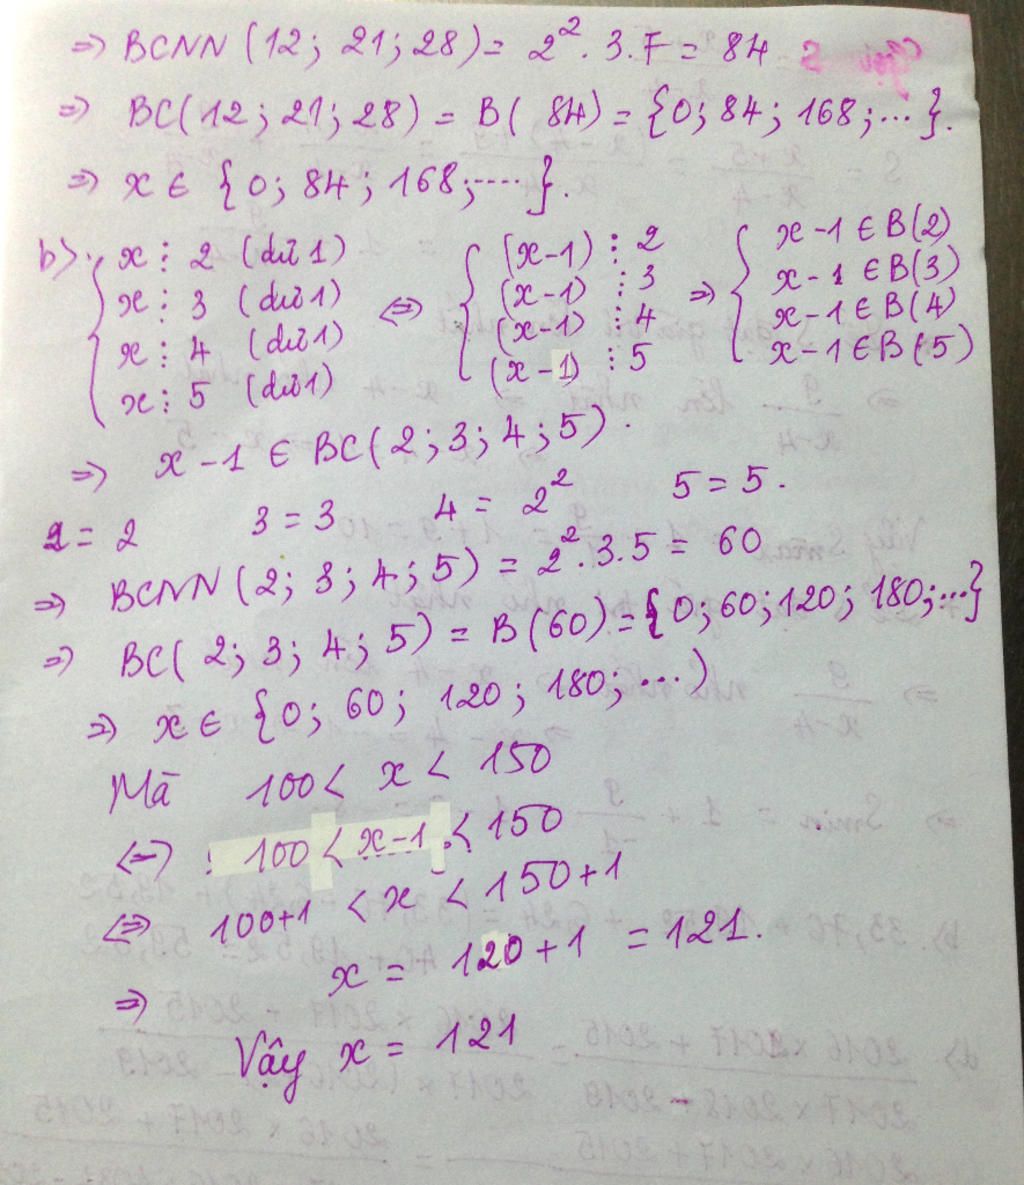 => BCNN (12; 21; 28) = 2². 3. 7 = 84
=> BC(12; 21; 28) = B( 84) = {0; 84; 168; ... }.
=> x ∈ {0; 84; 168; .... }.
b) x ⋮ 2 (dư 1) <=> (x-1) ⋮ 2 => x -1 ∈ B(2)
x ⋮ 3 (dư 1) (x-1) ⋮ 3 x- 1 ∈ B(3)
x ⋮ 4 (dư 1) (x-1) ⋮ 4 x-1 ∈ B(4)
x ⋮ 5 (dư 1) (x-1) ⋮ 5 x-1 ∈ B(5)
=> x -1 ∈ BC( 2; 3; 4; 5).
2 = 2 3 = 3 4 = 2² 5 = 5.
=> BCNN (2; 3; 4; 5) = 2². 3. 5 = 60
=> BC( 2; 3; 4; 5) = B (60) = {0; 60; 120; 180; ...}
=> x ∈ {0; 60; 120; 180; ...)
Mà 100 < x < 150
<=> 100 < x-1 < 150
<=> 100+1 < x < 150+1
=> x = 120+1 = 121.
Vậy x = 121